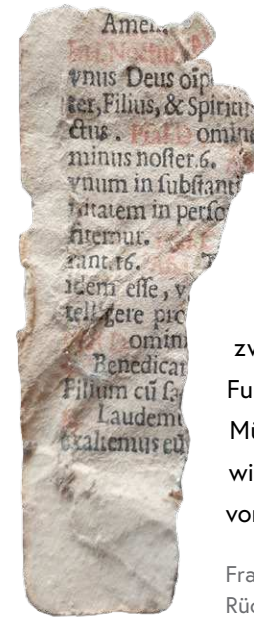 Amen.
vnus Deus oĩp
ter, Filius, & Spiritu
ctus. Psal. Domine
minus noſter. 6.
vnum in ſubſtanti
nitatem in perſo
fitemur.
rant. 16.
idem eſſe, v
telligere pro
omin
Benedicat
Filium cũ ſa
Laudemu
exaltemus eũ
zw
Fu
Mü
wi
vor
Fra
Rüc